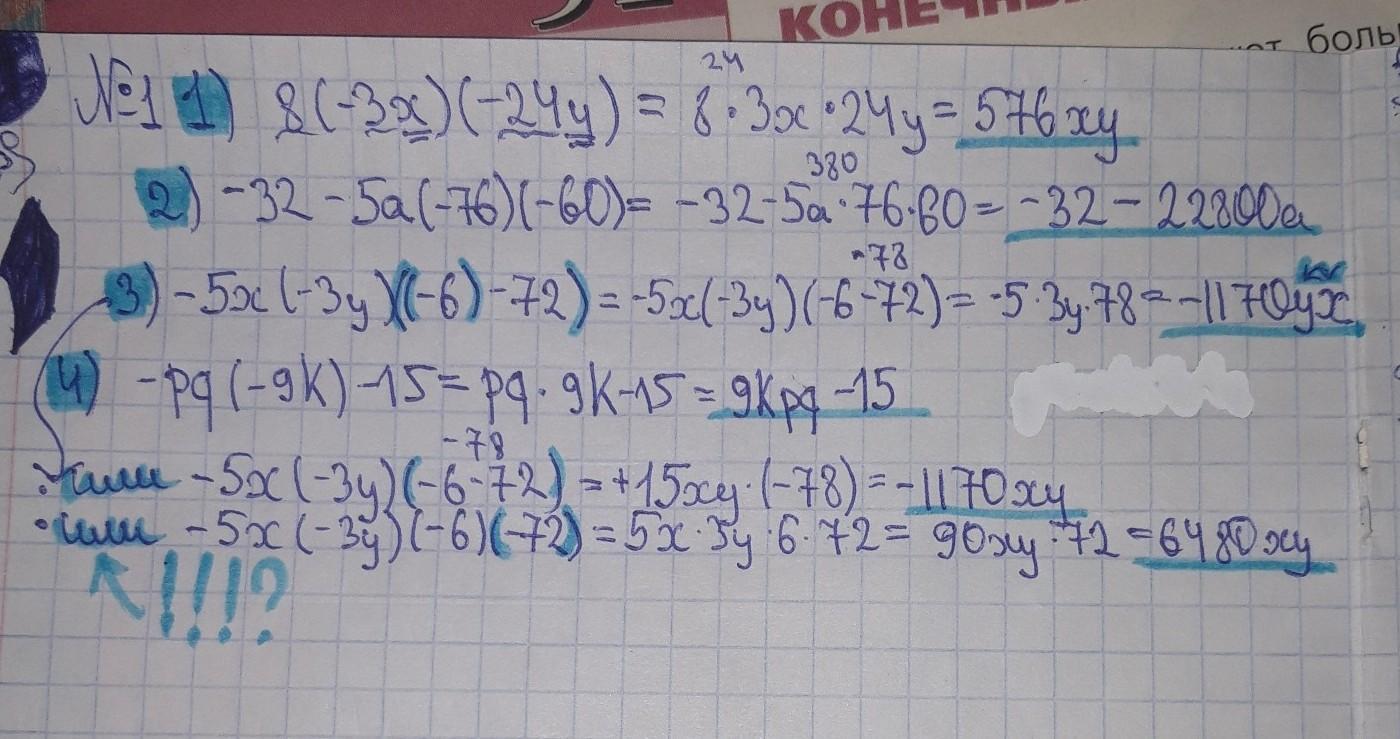 КОНЕЧН
ют боль
24
№1 1) 8(-3x)(-24y) = 8·3x·24y = 576xy
380
2) -32 - 5a(-76)(-60) = -32-5a·76·60 = -32 - 22800a
-78
3) -5x(-3y)((-6)-72) = -5x(-3y)(-6-72) = -5 3y·78 = -1170yx
4) -pq(-9k)-15 = pq·9k-15 = 9kpq -15
-78
или -5x(-3y)(-6-72) = +15xy·(-78) = -1170xy
·или -5x(-3y)(-6)(-72) = 5x·3y·6·72 = 90xy·72 = 6480xy
!!!?